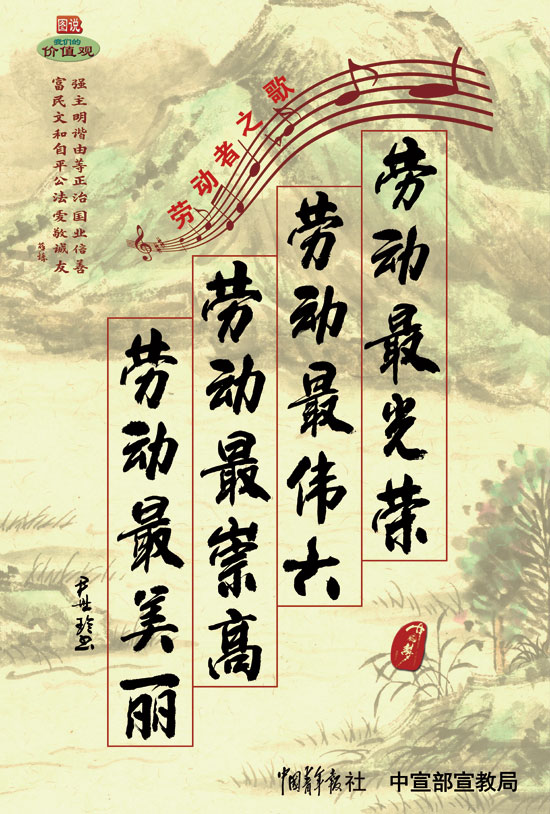 图说
我们的
价值观
富强
民主
文明
和谐
自由
平等
公正
法治
爱国
敬业
诚信
友善
劳动者之歌
劳动最光荣
劳动最伟大
劳动最崇高
劳动最美丽
中国梦
中国青年报社 中宣部宣教局